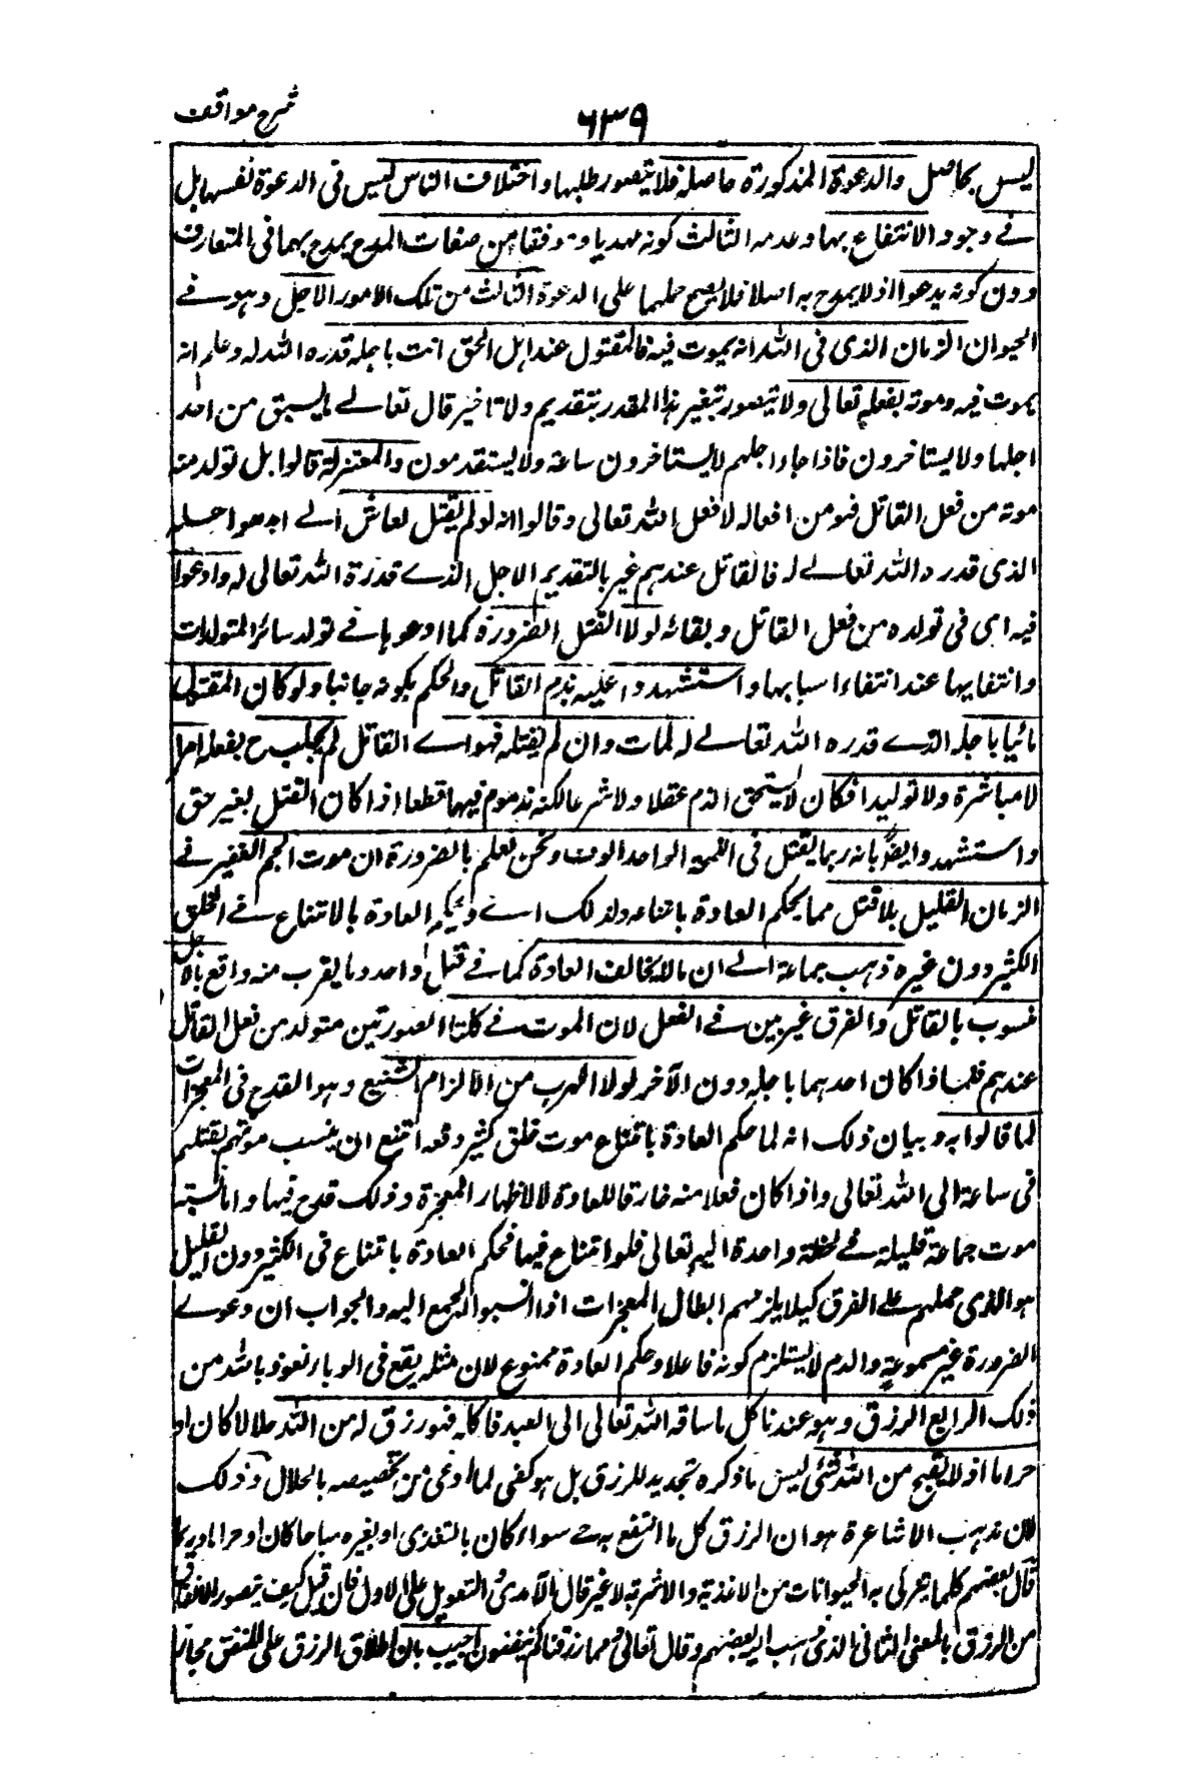 شرح مواقف
٦٣٩
ليس بحاصل والدعوة المذكورة حاصلة فلا يتصور طلبها واختلاف الناس ليس فى الدعوة نفسها بل
فے وجود الانتفاع بها وعدمه الثالث كونه مهديا وموفقا من صفات المدح يمدح بهما فى المتعارف
دون كونه يدعوا اذ لا يمدح به اصلا فلا يصح حملهما على الدعوة الثالث من تلك الامور الاجل وهو فے
الحيوان الزمان الذى فى الله انه يموت فيه فالمقتول عند اهل الحق انت باجله قدره الله له وعلم انه
يموت فيه وموته بفعله تعالى ولا يتصور تغير هذا المقدر بتقديم ولا تاخير قال تعالے ما يسبق من امة
اجلها وما يستاخرون فاذا جاء اجلهم لا يستاخرون ساعة ولا يستقدمون والمعتزلة قالوا بل تولد منه
موته من فعل القاتل فهو من افعاله لا فعل الله تعالى وقالوا انه لو لم يقتل لعاش الے امد هو اجله
الذى قدره الله تعالے له فالقاتل عندهم غير بالتقديم الاجل الذے قدرة الله تعالى له وادعوا
فيه اى فى تولده من فعل القاتل وبقائه لولا القتل الضرورة كما ادعوها فے تولد سائر المتولدات
وانتفايها عند انتفاء اسبابها واستشهدوا عليه بذم القاتل والحكم بكونه جانيا ولو كان المقتول
مائيا باجله الذے قدره الله تعالے له لمات وان لم يقتله فهو اے القاتل لم يجلب ح بفعله امرا
لا مباشرة ولا توليدا فكان لا يستحق الذم عقلا ولا شرعا لكنه مذموم فيها قطعا اذا كان القتل بغير حق
واستشهدوا ايضًا بانه ربما يقتل فى اللمحة الواحدة الوف ونحن نعلم بالضرورة ان موت الجم الغفير فے
الزمان القليل بلا قتل مما يحكم العادة بامتناعه ولذلك اے ولحكم العادة بالامتناع فے الخلق
الكثير دون غيره ذهب جماعة الے ان مالا يخالف العادة كما فے قتل واحد وما يقرب منه واقع بالاجل
منسوب بالقاتل والفرق غير بين فے العقل لان الموت فے كلتا الصورتين متولد من فعل القاتل
عندهم فلماذا كان احدهما باجله دون الآخر لولا الهرب من الالزام الشنيع وهو القدح فى المعجزات
لما قالوا به وبيان ذلك انه لما حكم العادة بامتناع موت خلق كثير دفعة امتنع ان ينسب موتهم بقتلهم
فى ساعة الى الله تعالى واذا كان فعلا منه خارقا للعادة لا لاظهار المعجزة وذلك قدح فيها واما نسبة
موت جماعة قليلة فے لحظة واحدة اليه تعالى فلو امتناع فيها فحكم العادة بامتناع فى الكثير دون القليل
هو الذى حملهم علے الفرق كيلا يلزمهم ابطال المعجزات اذا نسبوا الجميع اليه والجواب ان دعوے
الضرورة غير مسموعة والذم لا يستلزم كونه فاعلا وحكم العادة ممنوع لان مثله يقع فى الوباء نعوذ بالله من
ذلك الرابع الرزق وهو عندنا كل ما ساقه الله تعالى الى العبد فاكله فهو رزق له من الله حلالا كان او
حراما اذ لا يقبح من الله شئى ليس ما ذكره تحديد للرزق بل هو نفى لما ادعى من تخصيصه بالحلال وذلك
لان مذهب الاشاعرة هو ان الرزق كل ما انتفع به حے سواء كان بالتغذى او بغيره مباحا كان او حراما وربما
قال بعضهم كلما يتربى به الحيوانات من الاغذية والاشربة لا غير قال الآمدى التعويل على الاول فان قيل كيف يتصور الانفاق
من الرزق بالمعنى الثانى الذى ذهب اليه بعضهم وقال تعالى ومما رزقناكم ينفقون اجيب بان اطلاق الرزق على المنفق مجازا